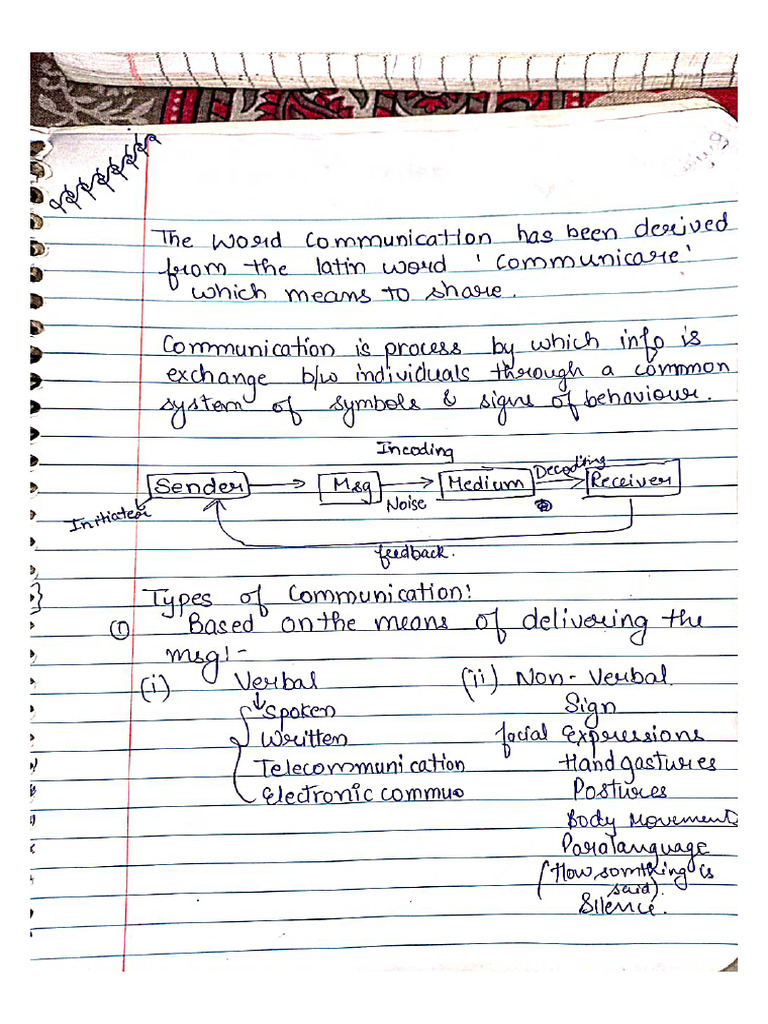 The word Communication has been derived
from the latin word ' Communicare'
which means to share.
Communication is process by which info is
exchange b/w individuals through a common
system of symbols & signs of behaviour.
Incoding
Sender Msg Medium Decoding Receiver
Initiater Noise
feedback.
Types of Communication:
① Based on the means of delivering the
msg:-
(i) Verbal (ii) Non-Verbal
Spoken Sign
Written facial Expressions
Telecommunication Hand gastures
Electronic commuo Postures
Body Movement
Paralanguage
(How somthing is
said).
Silence.